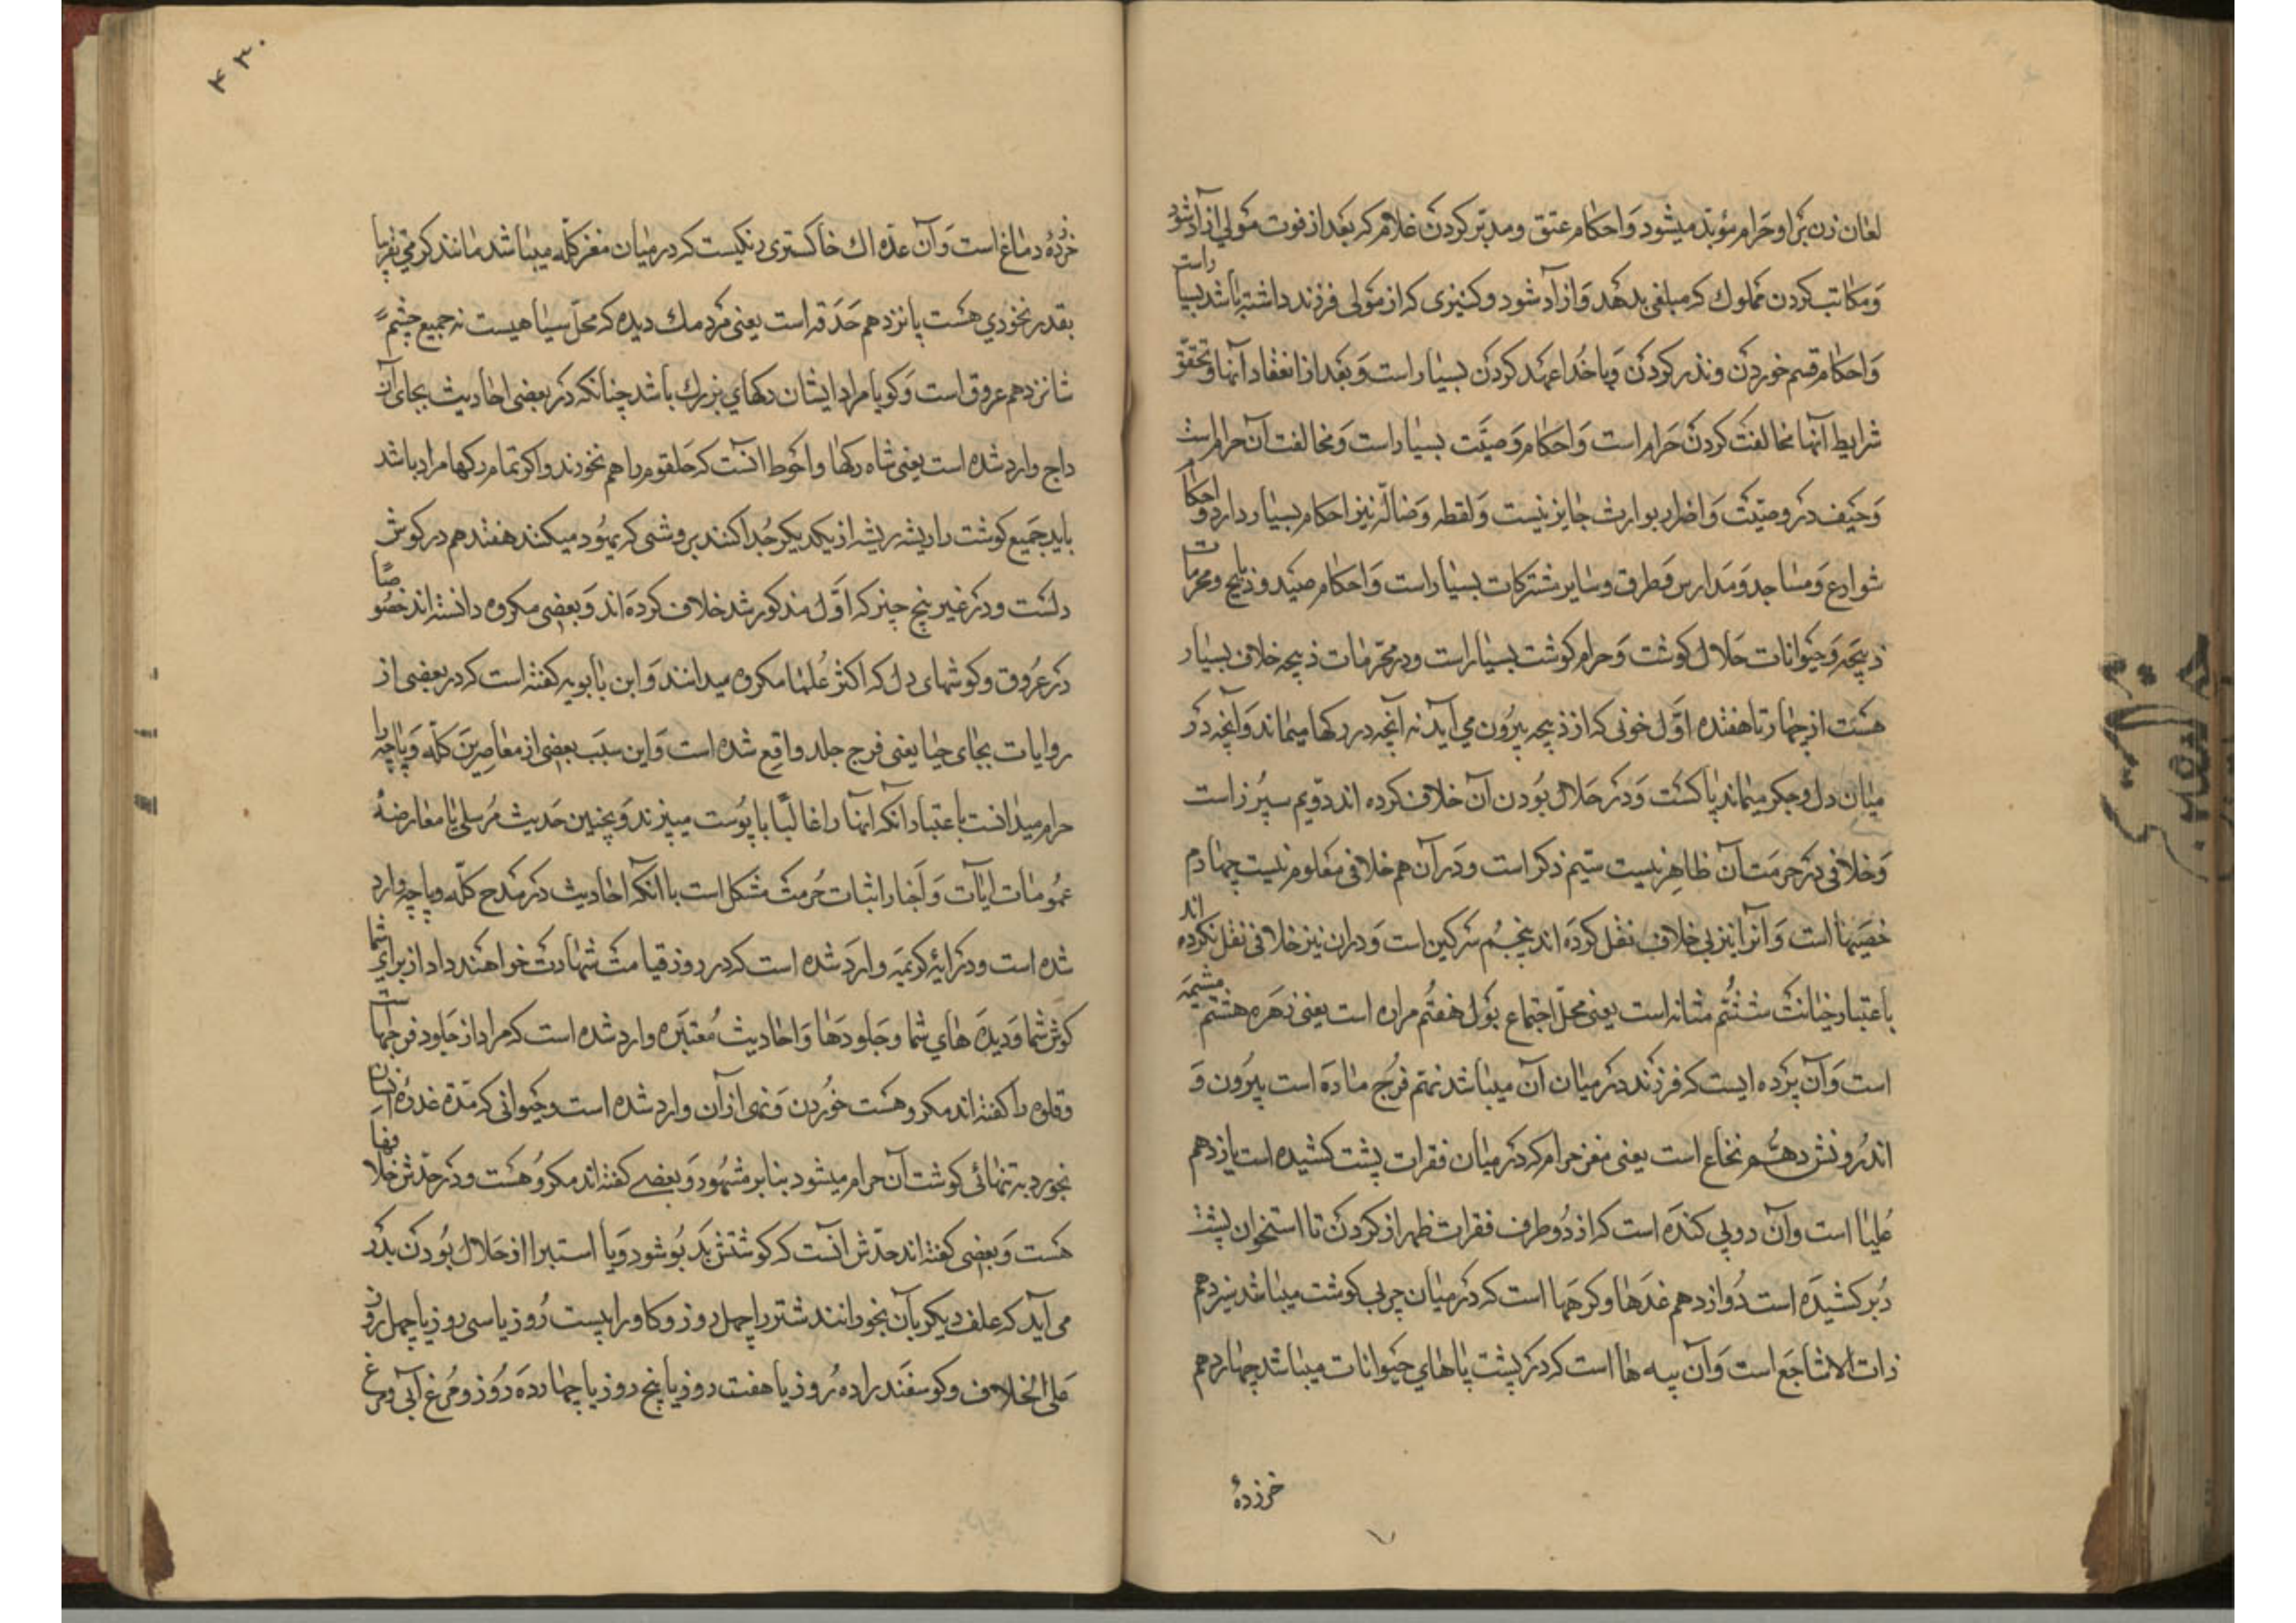 لعان زن بر او حرام مؤبد میشود و احکام عتق و مدبّر کردن غلام که بعد از فوت مولی ازاد شود
و مکاتب کردن مملوك که مبلغی بدهد و ازاد شود و کنیزی که از مولی فرزند داشته باشد بسیار است
و احکام قسم خوردن و نذر کردن و با خدا عهد کردن بسیار است و بعد از انعقاد آنها و تحقق
شرایط آنها مخالفت کردن حرام است و احکام وصیّت بسیار است و مخالفت آن حرام است
و حیف در وصیّت و اضرار بوارث جایز نیست و لقطه و ضالّه نیز احکام بسیار دارد و احکام
شوارع و مساجد و مدارس و طرق و سایر مشترکات بسیار است و احکام صید و ذبایح و محرمات
ذبیحه و حیوانات حلال کوشت و حرام کوشت بسیار است و در محرّمات ذبیحه خلاف بسیار
هست از چهار تا هفده اوّل خونی که از ذبیحه بیرون می آید نه آنچه در رکها میماند و آنچه در
میان دل و جکر میماند پاکست و در حلال بودن آن خلاف کرده اند دویم سپرز است
و خلافی در حرمت آن ظاهر نیست سیّم ذکر است و در آن هم خلافی معلوم نیست چهارم
خصیها است و آنرا نیز بی خلاف نقل کرده اند پنجم سرکین است و دران نیز خلافی نقل نکرده اند
باعتبار خباثت ششم مثانه است یعنی محلّ اجتماع بول هفتم مراره است یعنی زهره هشتم مشیمه
است و آن پرده ایست که فرزند در میان آن میباشد نهم فرج ماده است بیرون و
اندرونش دهم نخاع است یعنی مغز حرام که در میان فقرات پشت کشیده است یازدهم
علبا است و آن دو پی کنده است که از دو طرف فقرات ظهر از کردن تا استخوان پشت
دبر کشیده است دوازدهم غدها و کرهها است که در میان چربی کوشت میباشد سیزدهم
ذات الاشاجع است و آن پیه ها است که در پشت پاهای حیوانات میباشد چهاردهم
خرزهٔ
۴۳۰
خرزهٔ دماغ است و آن غدّه اك خاکستری رنکیست که در میان مغز کلّه میباشد مانند کرمی تقریبا
بقدر نخودی هست پانزدهم حدقه است یعنی مردمك دیده که محلّ سیاهیست نه جمیع چشم
شانزدهم عروق است و کویا مراد ایشان رکهای بزرك باشد چنانکه در بعضی احادیث بجای آن
داج وارد شده است یعنی شاه رکها و احوط آنست که حلقوم را هم نخورند و اکر تمام رکها مراد باشد
باید جمیع کوشت را ریشه ریشه از یکدیکر جدا کنند بروشی که یهود میکنند هفدهم در کوش
دلست و در غیر پنج چیز که اوّل مذکور شد خلاف کرده اند و بعضی مکروه دانسته اند خصوصًا
در عروق و کوشهای دل که اکثر علما مکروه میدانند و ابن بابویه کفته است که در بعضی از
روایات بجای حیا یعنی فرج جلد واقع شده است و این سبب بعضی از معاصرین کلّه و پاچه را
حرام میدانست باعتبار آنکه آنها را غالبًا با پوست میپزند و بچنین حدیث مرسلی با معارضهٔ
عمومات ایات و اخبار اثبات حرمت مشکل است با آنکه احادیث در مدح کلّه و پاچه وارد
شده است و در ایهٔ کریمه وارد شده است که در روز قیامت شهادت خواهند داد از برای شما
کوش شما و دیده های شما و جلودها و احادیث معتبره وارد شده است که مراد از جلود فرجهاست
و قلوه را کفته اند مکروهست خوردن و نهی از آن وارد شده است و حیوانی که مدّة غذرهٔ انسان
بخورد به تنهائی کوشت آن حرام میشود بنابر مشهود و بعضی کفته اند مکروهست و در حدّش خلافها
هست و بعضی کفته اند حدّش آنست که کوشتش بدبو شود و یا استبرا از حلال بودن بدر
می آید که علف دیکر بآن بخورانند شتر را چهل روز و کاو را بیست روز یا سی روز یا چهل روز
علی الخلاف و کوسفند را ده روز یا هفت روز یا پنج روز یا چهارده روز و مرغ آبی و مرغ